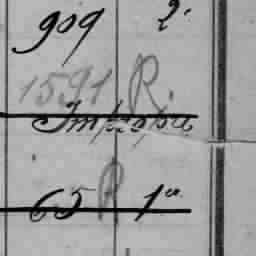 909 2.
1591 R.
65 R 1a